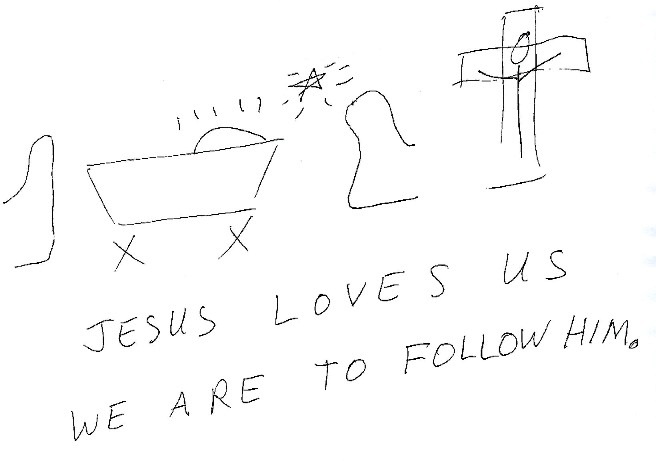 JESUS LOVES US
WE ARE TO FOLLOW HIM.